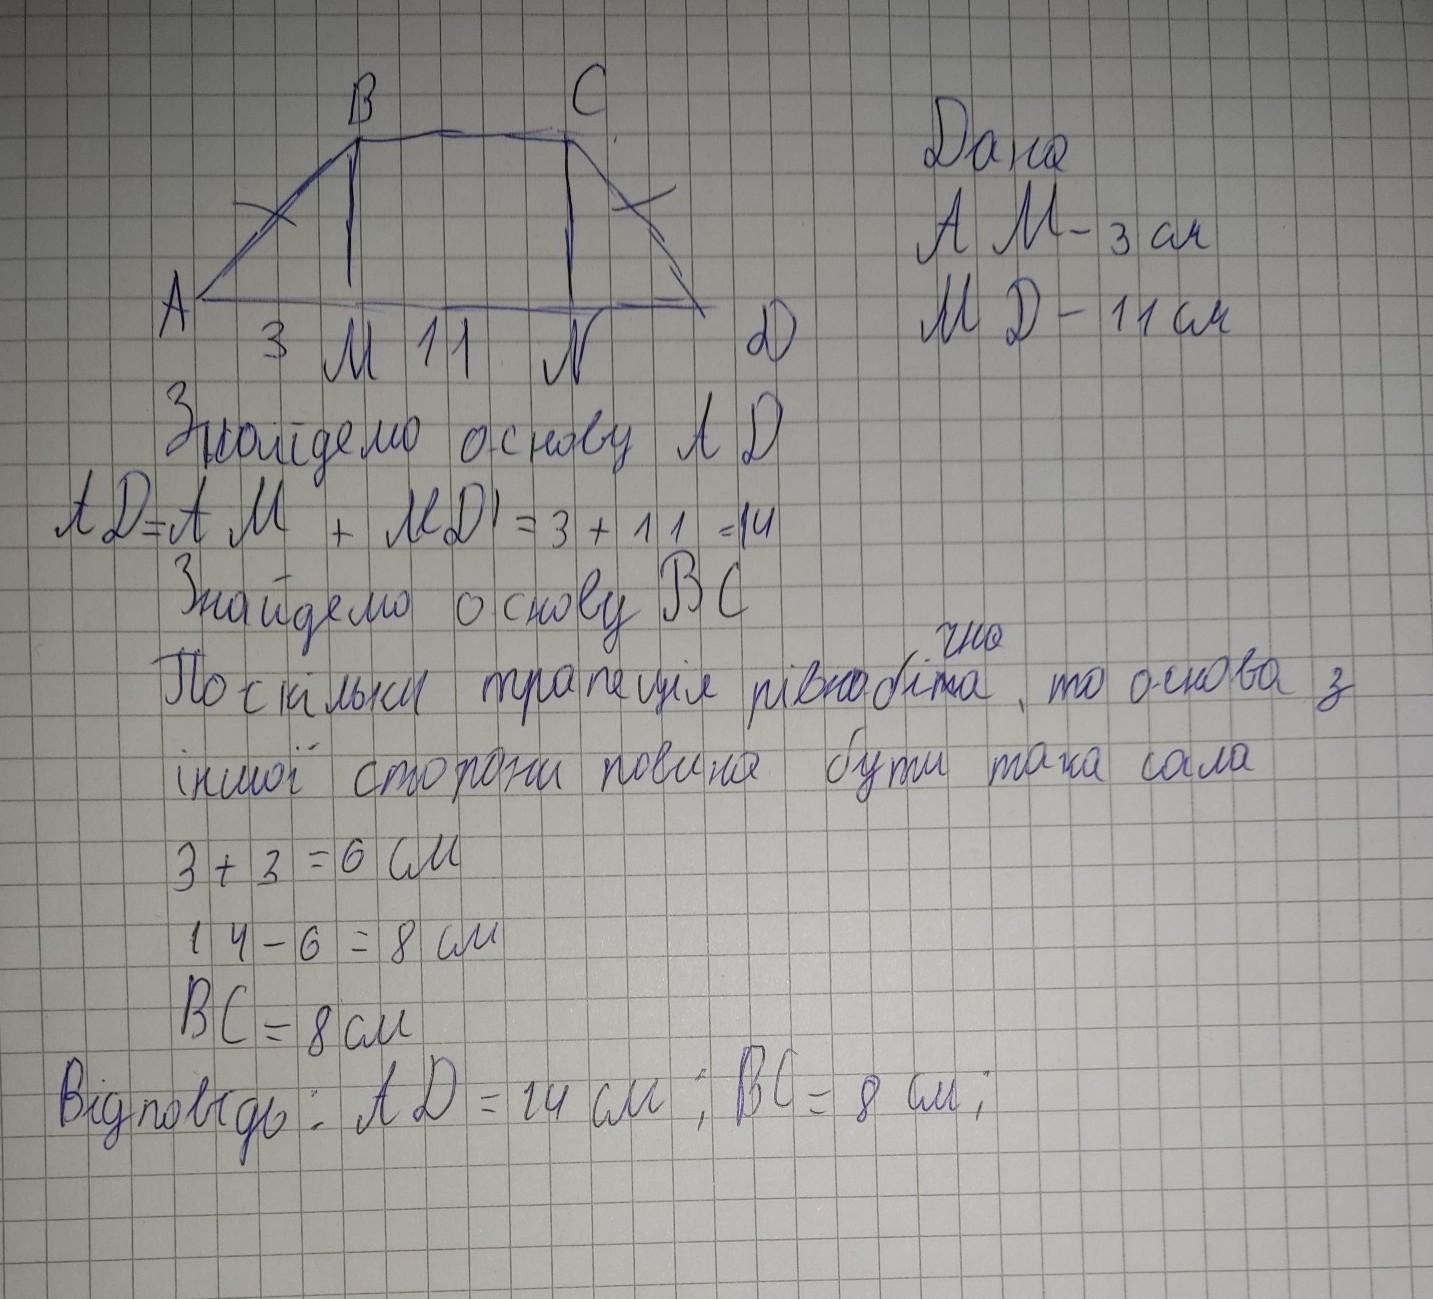 B C
A 3 M 11 N D
Дано
AM - 3 см
MD - 11 см
Знайдемо основу AD
AD = AM + MD = 3 + 11 = 14
Знайдемо основу BC
чна
Поскільки трапеція рівнобіта, то основа з
іншої сторони повина бути така сама
3 + 3 = 6 см
14 - 6 = 8 см
BC = 8 см
Відповідь: AD = 14 см; BC = 8 см;